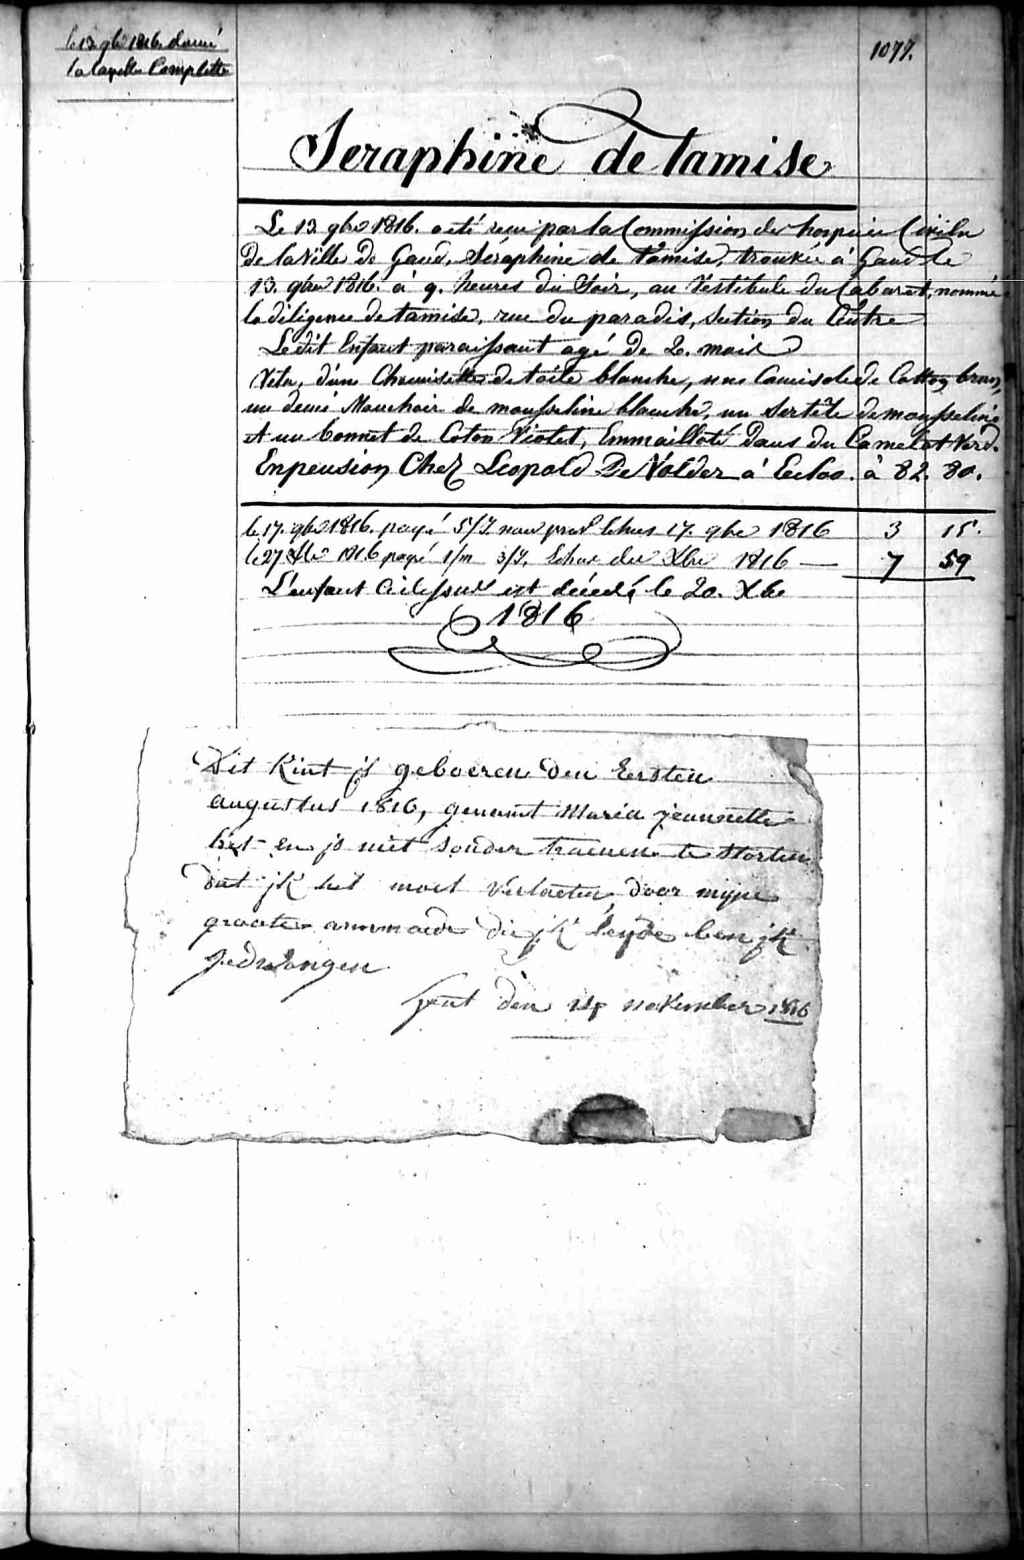 le 13 9bre 1816 donné
la Layette Complette
1077.
Seraphine de Tamise
Le 13 9bre 1816. a été reçu par la Commission des hospices Civils
De la Ville de Gand, Séraphine de tamise, trouvée à Gand le
13. 9bre 1816. à 9. heures du Soir, au Véstibule du Cabaret, nommé
la diligence de tamise, rue du paradis, Section du Centre
Ledit Enfant paraissant agé de 2. mois
Vetu, d'une Chemisette de toile blanche, une Camisole de Cotton brun,
un demi Mouchoir de mousseline blanche, un Sertête de mousseline
et un bonnet de Coton Violet, Emmailloté dans du Camelot Verd.
Enpension, Chez Leopold De Volder à Eecloo. à 82. 80.
le 17. 9bre 1816. payé 5/7. nour 17. 9bre 1816 3 15.
le 27 Xbre 1816 payé 1/m 3/7. Echus du Xbre 1816 — 7 59
L'enfant Cidessus est décedé le 20. Xbre
1816
Dit Kint js geboeren den Eersten
augustus 1816, genaamt Maria jeannette
het en js niet sonder traenen te storten
dat jk het moet verlaeten door mijne
groote armoede die jk leyde ben jk
gedwongen
Gent den 14 november 1816